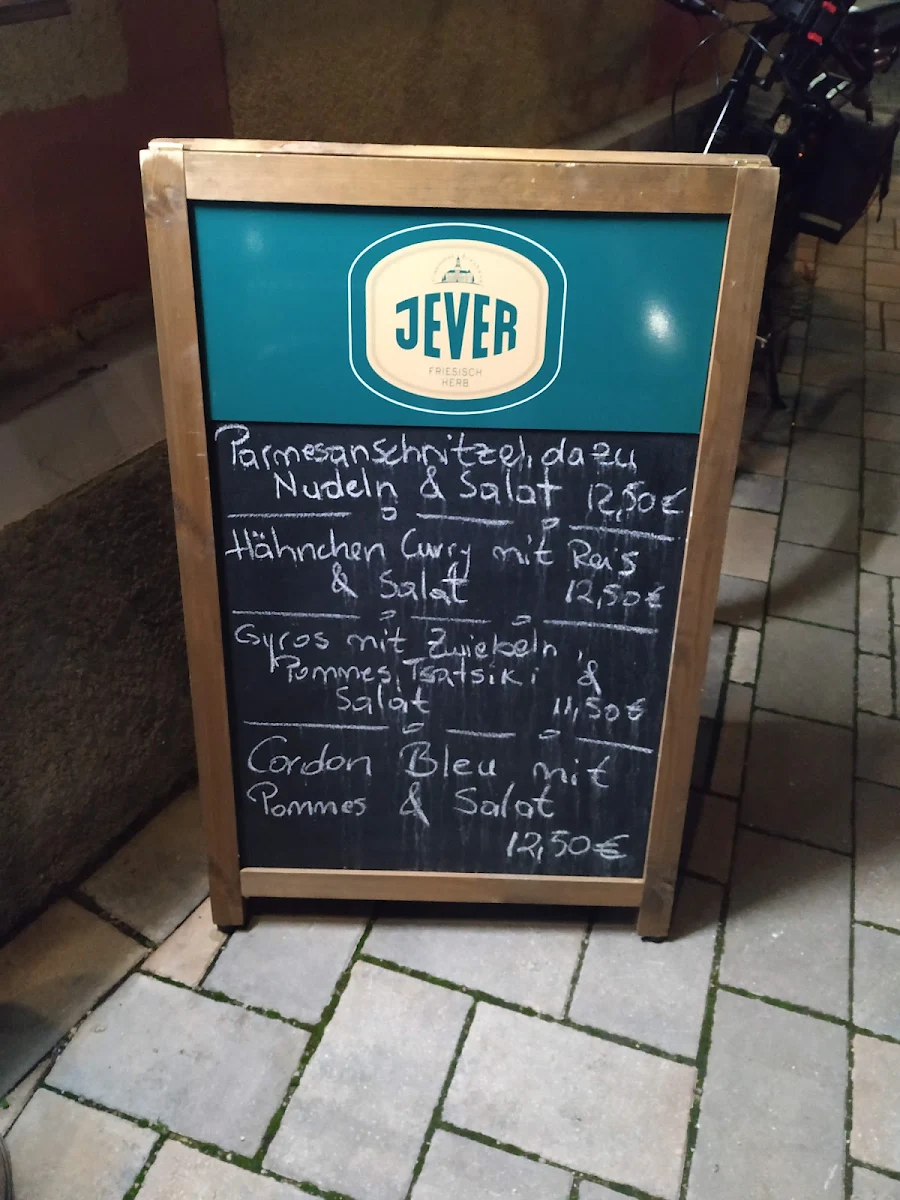 JEVER
FRIESISCH
HERB
Parmesanschnitzel, dazu
Nudeln & Salat 12,50€
Hähnchen Curry mit Reis
& Salat 12,50€
Gyros mit Zwiebeln,
Pommes, Tsatsiki &
Salat 11,50€
Cordon Bleu mit
Pommes & Salat
12,50€